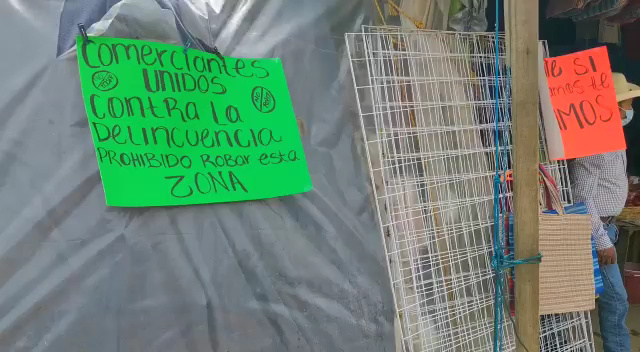 Comerciantes
UNIDOS
Contra la
Delincuencia
PROHIBIDO ROBAR esta
ZONA
SI
MOS